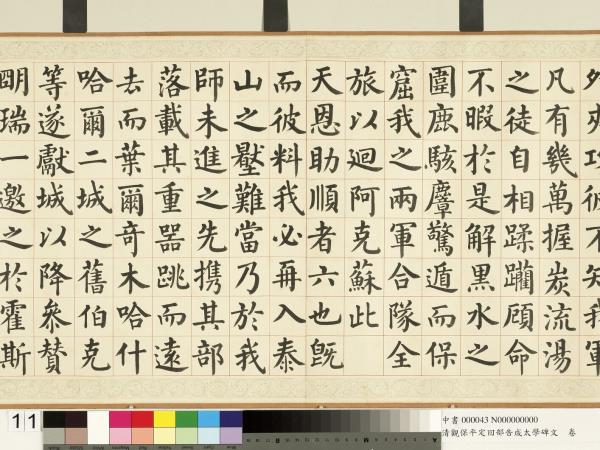 外夾攻彼不知我軍
凡有幾萬握炭流湯
之徒自相蹂躪顧命
不暇於是解黑水之
圍鹿駭麞驚遁而保
窟我之兩軍合隊全
旅以迴阿克蘇此
天恩助順者六也既
而彼料我必再入泰
山之壑難當乃於我
師未進之先携其部
落載其重器跳而遠
去而葉爾奇木哈什
哈爾二城之舊伯克
等遂獻城以降叅贊
明瑞一邀之於霍斯
11
中書 000043 N000000000
清觀保平定回部告成太學碑文 卷